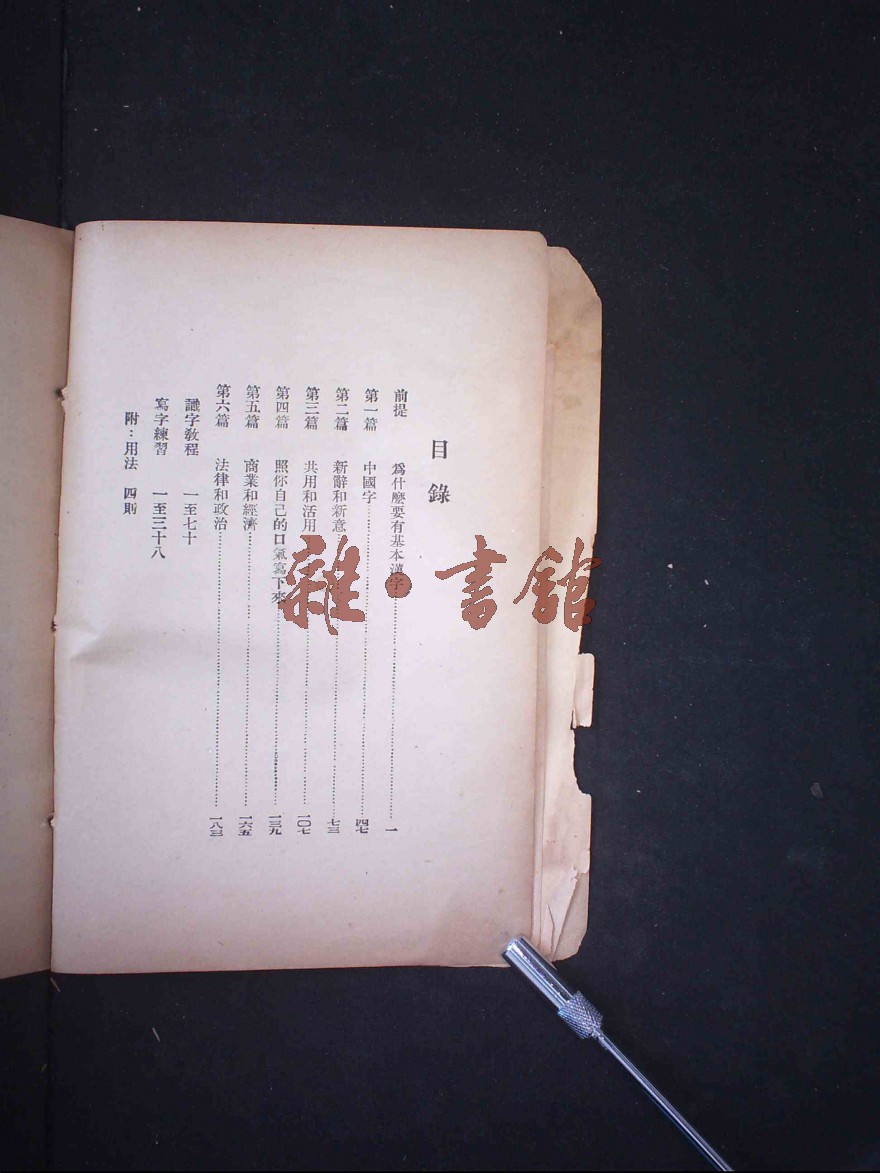 目錄
前提　為什麼要有基本漢字…………一
第一篇　中國字…………四七
第二篇　新辭和新意…………七三
第三篇　共用和活用…………一〇七
第四篇　照你自己的口氣寫下來…………一三九
第五篇　商業和經濟…………一六五
第六篇　法律和政治…………一八三
識字教程　一至七十
寫字練習　一至三十八
附：用法　四則
雜·書館